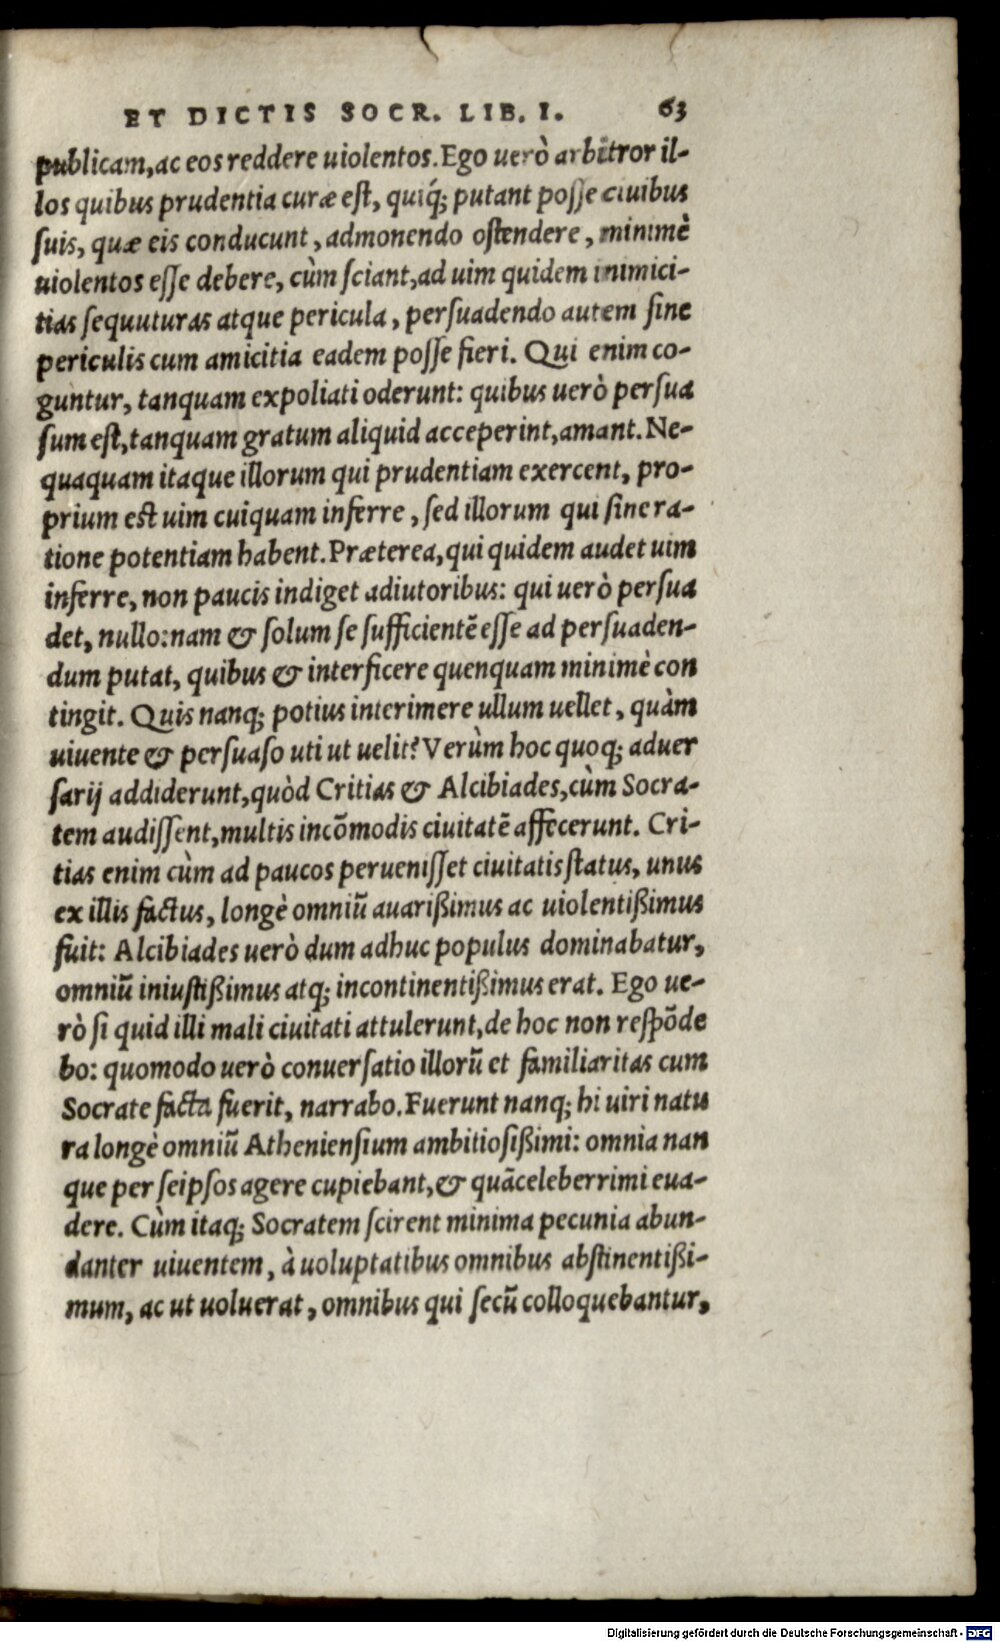 ET DICTIS SOCR. LIB. I. 63
publicam, ac eos reddere uiolentos. Ego uerò arbitror il-
los quibus prudentia curæ est, quiq́; putant posse ciuibus
suis, quæ eis conducunt, admonendo ostendere, minimè
uiolentos esse debere, cùm sciant, ad uim quidem inimici-
tias sequuturas atque pericula, persuadendo autem sine
periculis cum amicitia eadem posse fieri. Qui enim co-
guntur, tanquam expoliati oderunt: quibus uerò persua
sum est, tanquam gratum aliquid acceperint, amant. Ne-
quaquam itaque illorum qui prudentiam exercent, pro-
prium est uim cuiquam inferre, sed illorum qui sine ra-
tione potentiam habent. Præterea, qui quidem audet uim
inferre, non paucis indiget adiutoribus: qui uerò persua
det, nullo: nam & solum se sufficientē esse ad persuaden-
dum putat, quibus & interficere quenquam minimè con
tingit. Quis nanq; potius interimere ullum uellet, quàm
uiuente & persuaso uti ut uelit? Verùm hoc quoq; aduer
sarij addiderunt, quòd Critias & Alcibiades, cùm Socra-
tem audissent, multis incōmodis ciuitatē affecerunt. Cri-
tias enim cùm ad paucos peruenisset ciuitatis status, unus
ex illis factus, longè omniū auarißimus ac uiolentißimus
fuit: Alcibiades uerò dum adhuc populus dominabatur,
omniū iniustißimus atq; incontinentißimus erat. Ego ue-
rò si quid illi mali ciuitati attulerunt, de hoc non respōde
bo: quomodo uerò conuersatio illorū et familiaritas cum
Socrate facta fuerit, narrabo. Fuerunt nanq; hi uiri natu
ra longè omniū Atheniensium ambitiosißimi: omnia nan
que per seipsos agere cupiebant, & quā celeberrimi eua-
dere. Cùm itaq; Socratem scirent minima pecunia abun-
danter uiuentem, à uoluptatibus omnibus abstinentißi-
mum, ac ut uoluerat, omnibus qui secū colloquebantur,
Digitalisierung gefördert durch die Deutsche Forschungsgemeinschaft - DFG